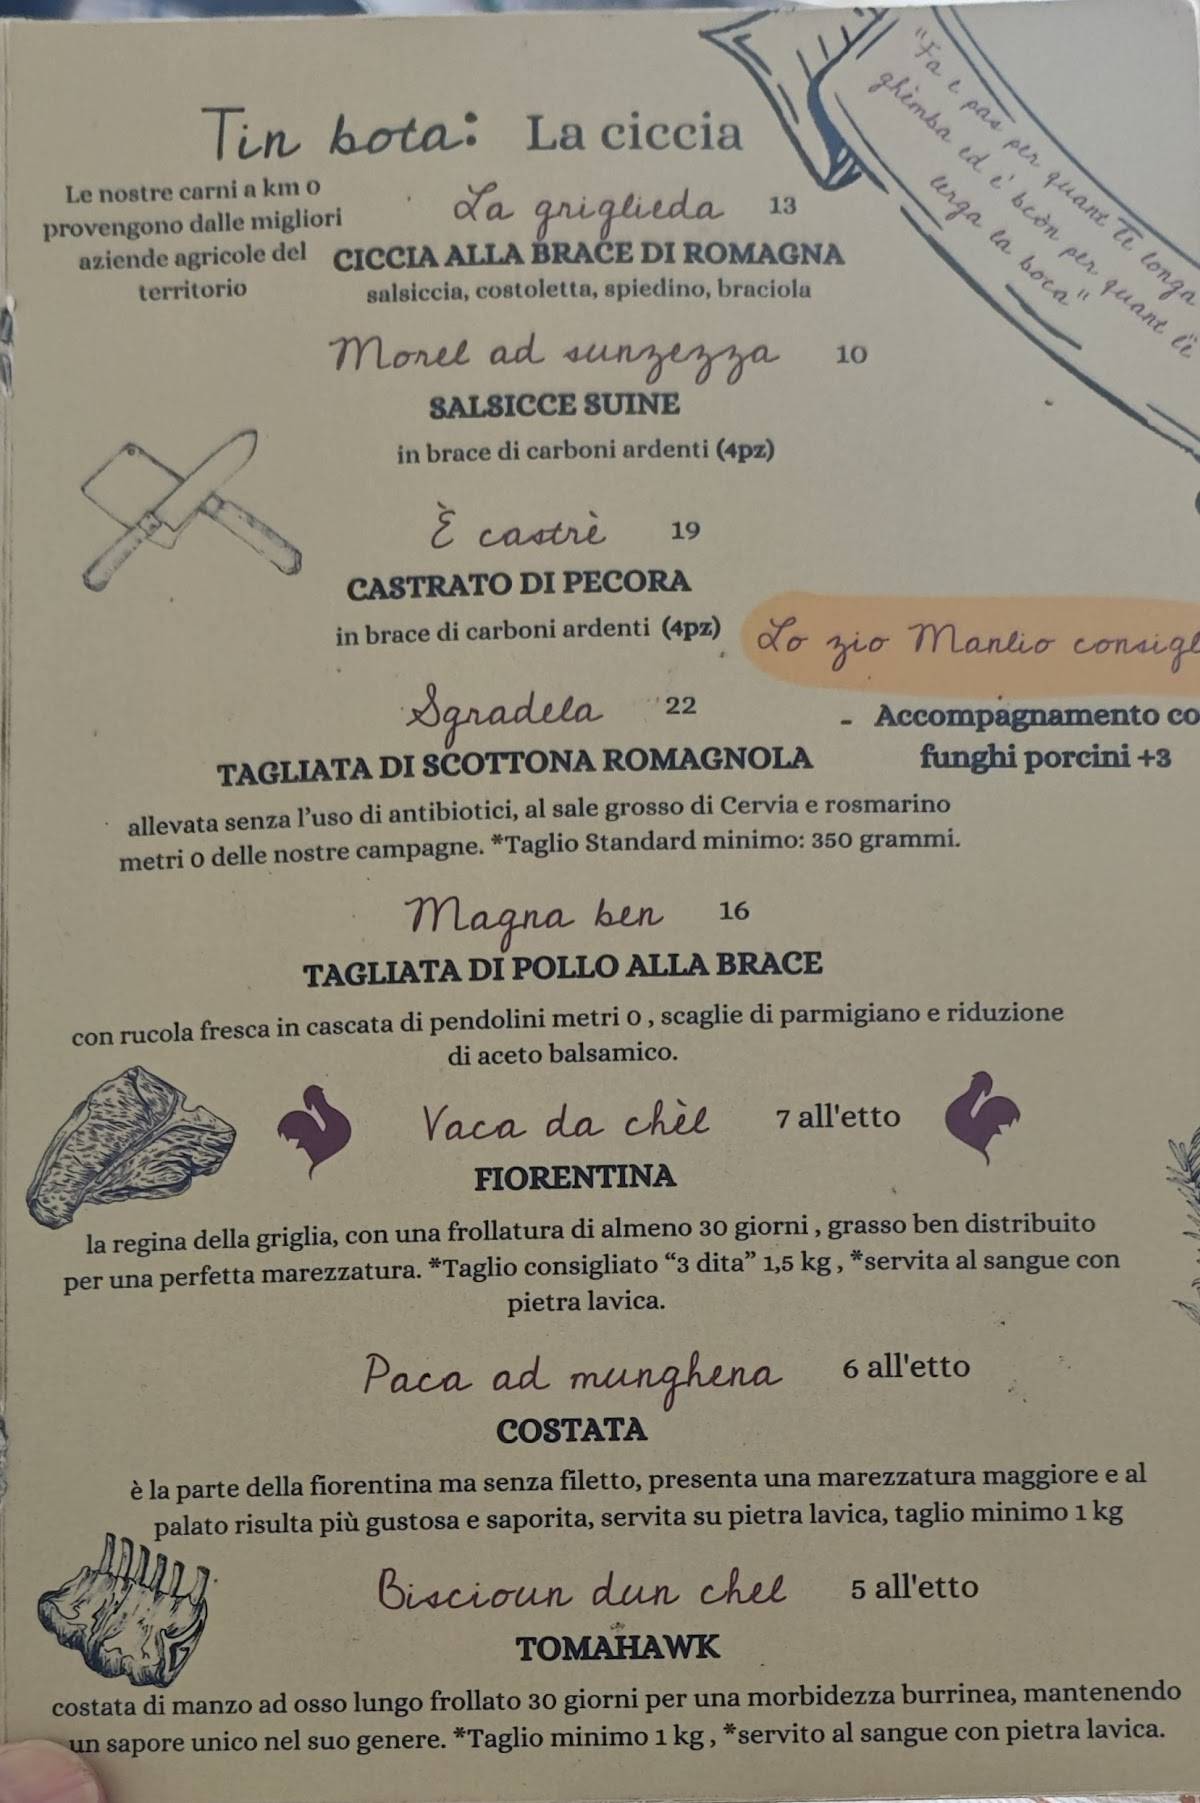 Tin bota: La ciccia
"Fa e pas per quant te longa
ghèmba ed e' bcòn per quant li
lerga la boca"
Le nostre carni a km 0
provengono dalle migliori
aziende agricole del
territorio
La griglieda 13
CICCIA ALLA BRACE DI ROMAGNA
salsiccia, costoletta, spiedino, braciola
Morel ad sunzezza 10
SALSICCE SUINE
in brace di carboni ardenti (4pz)
È castrè 19
CASTRATO DI PECORA
in brace di carboni ardenti (4pz)
Lo zio Manlio
Sgradela 22
TAGLIATA DI SCOTTONA ROMAGNOLA
- Accompagnamento
funghi porcini +3
allevata senza l'uso di antibiotici, al sale grosso di Cervia e rosmarino
metri 0 delle nostre campagne. *Taglio Standard minimo: 350 grammi.
Magna ben 16
TAGLIATA DI POLLO ALLA BRACE
con rucola fresca in cascata di pendolini metri 0 , scaglie di parmigiano e riduzione
di aceto balsamico.
Vaca da chèl 7 all'etto
FIORENTINA
la regina della griglia, con una frollatura di almeno 30 giorni , grasso ben distribuito
per una perfetta marezzatura. *Taglio consigliato "3 dita" 1,5 kg , *servita al sangue con
pietra lavica.
Paca ad munghena 6 all'etto
COSTATA
è la parte della fiorentina ma senza filetto, presenta una marezzatura maggiore e al
palato risulta più gustosa e saporita, servita su pietra lavica, taglio minimo 1 kg
Biscioun dun chel 5 all'etto
TOMAHAWK
costata di manzo ad osso lungo frollato 30 giorni per una morbidezza burrinea, mantenendo
un sapore unico nel suo genere. *Taglio minimo 1 kg , *servito al sangue con pietra lavica.